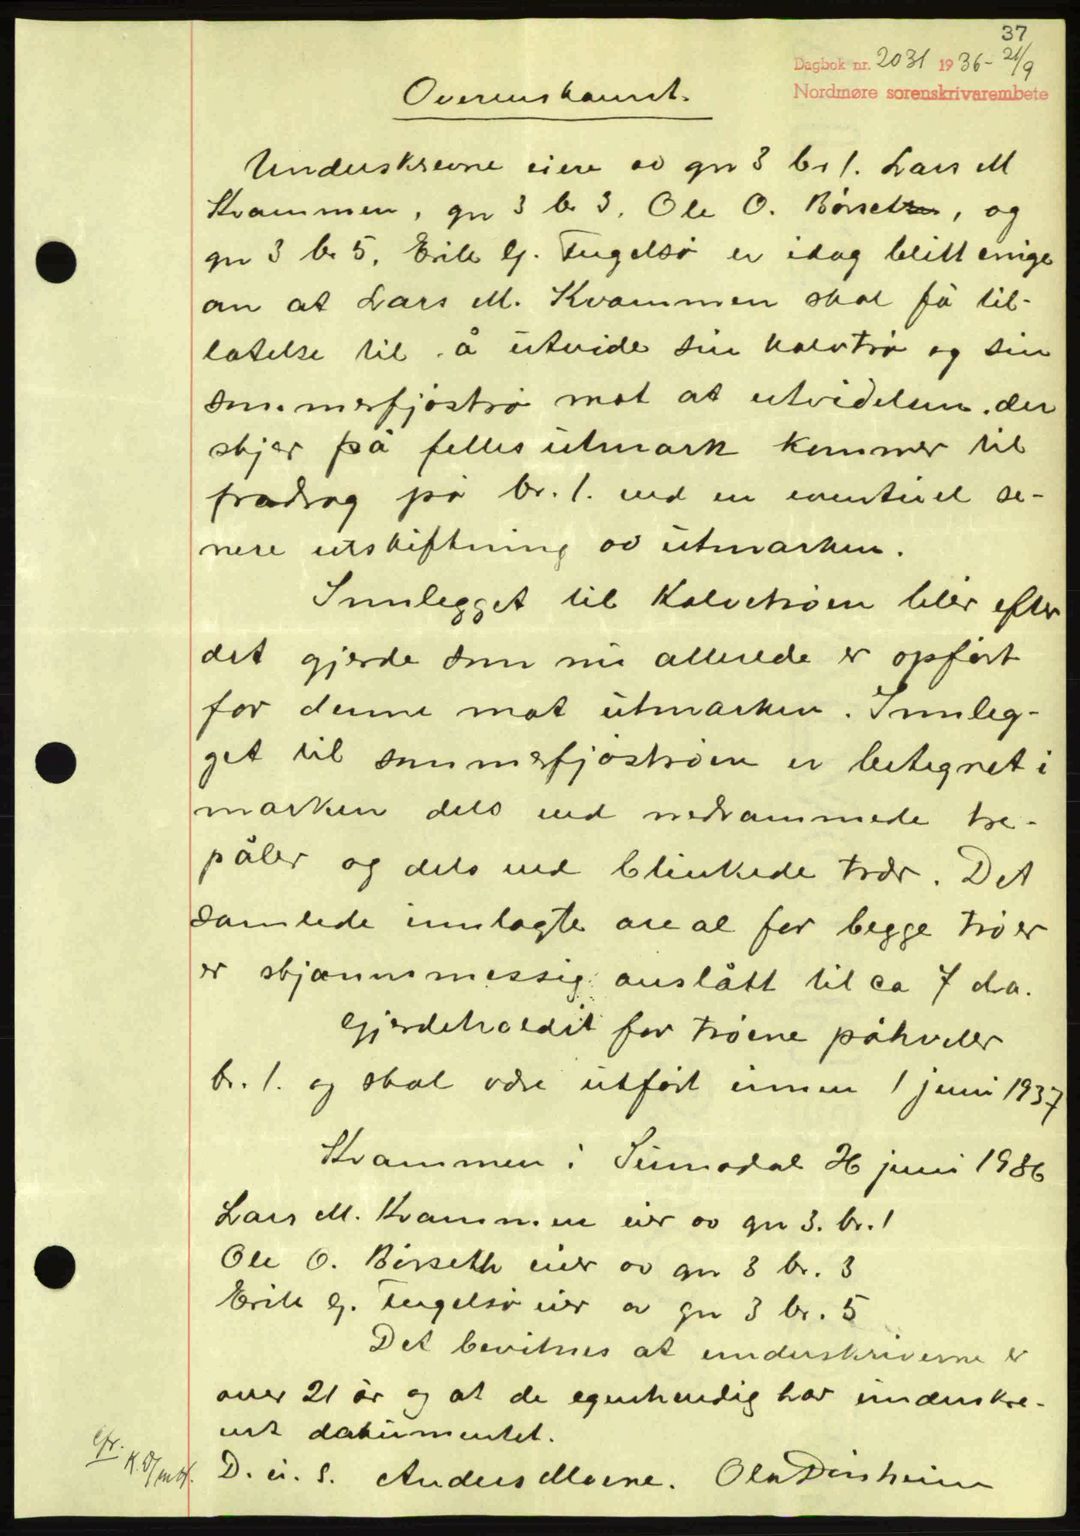 37
Dagbok nr. 2031 1936 - 21/9
Nordmøre sorenskrivarembete
Overenskomst.
Underskrevne eiere av gn 3 br 1. Lars M
Kvammen, gn 3 br 3, Ole O. Børseth, og
gn 3 br 5, Erik G. Fugelsø er idag blitt enige
om at Lars M. Kvammen skal få til-
latelse til å utvide sin kalvtrø og sin
sommerfjøstrø mot at utvidelsen der
skjer på felles utmark kommer til
fradrag på br. 1. ved en eventuel se-
nere utskiftning av utmarken.
Innlegget til Kalvetrøen blir efter
det gjerde som nu allerede er opført
for denne mot utmarken. Innleg-
get til sommerfjøstrøen er betegnet i
marken dels ved nedrammede tre-
påler og dels ved blinkede trær. Det
samlede innlagte areal for begge trøer
er skjønnsmessig anslått til ca 7 da.
Gjerdeholdet for trøene påhviler
br. 1. og skal være utført innen 1 juni 1937
Kvammen i Sunndal 26 juni 1936
Lars M. Kvammen eier av gn 3. br. 1
Ole O. Børseth eier av gn 3 br. 3
Erik G. Fugelsø eier av gn 3 br. 5
Det bevitnes at underskriverne er
over 21 år og at de egenhendig har underskre-
vet dokumentet.
D. u. s. Anders Moene. Ola